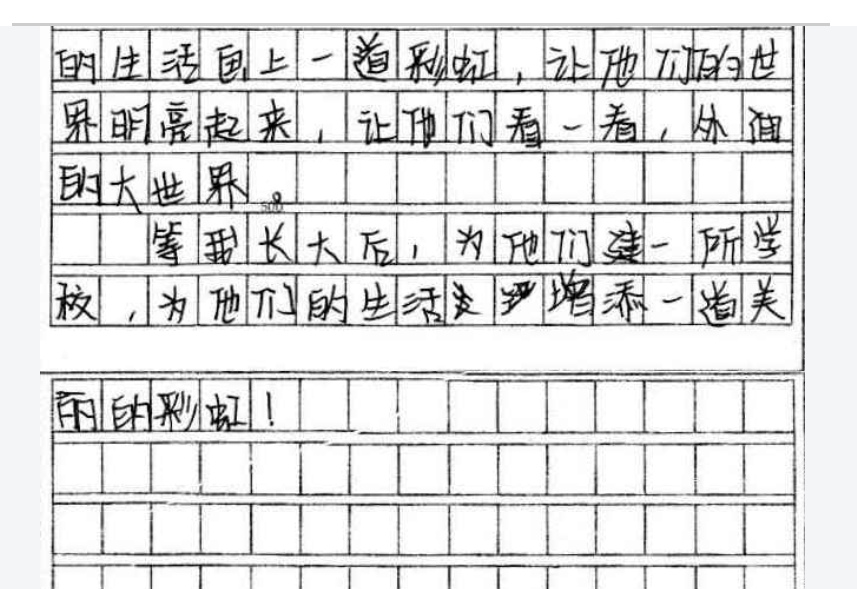 的生活画上一道彩虹，让他们的世
界明亮起来，让他们看一看，外面
的大世界。
等我长大后，为他们建一所学
校，为他们的生活增添一道美
丽的彩虹！